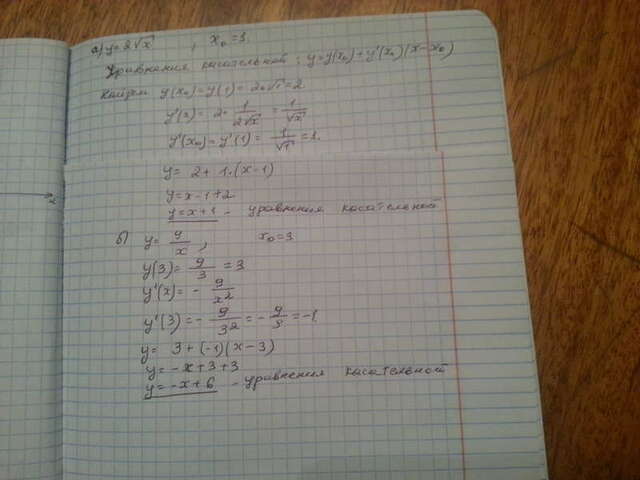 а) y = 2√x , x₀ = 1.
Уравнения касательной: y = y(x₀) + y'(x₀)(x - x₀)
Найдем y(x₀) = y(1) = 2·√1 = 2
y'(x) = 2·1/(2√x) = 1/√x
y'(x₀) = y'(1) = 1/√1 = 1.
y = 2 + 1·(x - 1)
y = x - 1 + 2
y = x + 1 - уравнения касательной
б) y = 9/x , x₀ = 3
y(3) = 9/3 = 3
y'(x) = - 9/x²
y'(3) = - 9/3² = - 9/9 = -1
y = 3 + (-1)(x - 3)
y = -x + 3 + 3
y = -x + 6 - уравнения касательной